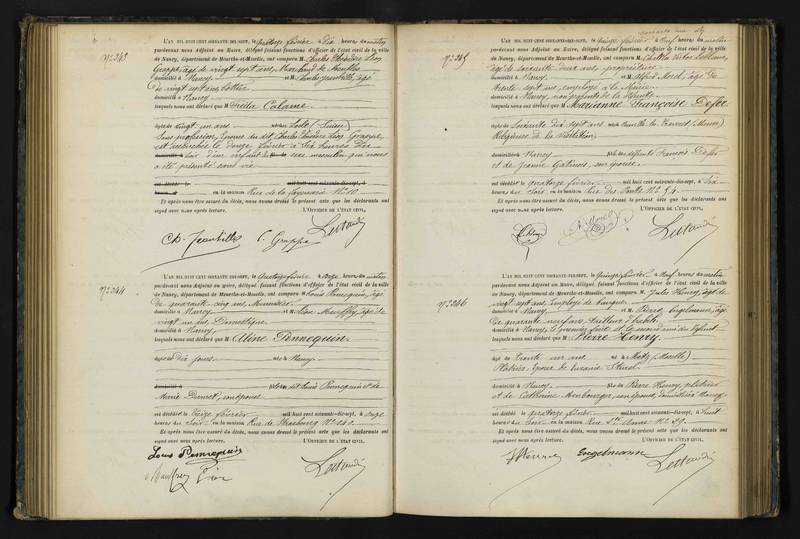 N° 243
L'AN MIL HUIT CENT SOIXANTE-DIX-SEPT, le quatorze février à dix heures du matin
pardevant nous Adjoint au Maire, délégué faisant fonctions d'officier de l'état civil de la ville
de Nancy, département de Meurthe-et-Moselle, ont comparu M. Charles Théodore Léon
Grappe, âgé de vingt sept ans, Marchand de
domicilié à Nancy et M. Charles Jeantilles, âgé
de vingt ans,
domicilié à Nancy
lesquels nous ont déclaré que Frieda Calame
âgée de vingt un ans née au Locle (Suisse)
Sans profession, épouse du dit Charles Théodore Léon Grappe,
est accouchée le douze février à six heures du
soir d'un enfant de sexe masculin qui nous
a été présenté sans vie
en la maison Rue de la N° 10.
Et après nous être assuré du décès, nous avons dressé le présent acte que les déclarants ont
signé avec nous après lecture. L'OFFICIER DE L'ÉTAT CIVIL,
Ch. Jeantilles C. Grappe
N° 244
L'AN MIL HUIT CENT SOIXANTE-DIX-SEPT, le quatorze février à onze heures du matin
pardevant nous Adjoint au Maire, délégué faisant fonctions d'officier de l'état civil de la ville
de Nancy, département de Meurthe-et-Moselle, ont comparu M. Louis Pennequin, âgé
de quarante ans,
domicilié à Nancy et M. Léon âgé de
vingt un ans, Domestique
domicilié à Nancy
lesquels nous ont déclaré que Aline Pennequin
âgée de Dix jours née à Nancy
fille du dit Louis Pennequin et de
Marie son épouse
est décédée le treize février mil huit cent soixante-dix-sept, à onze
heures du soir en la maison Rue de Strasbourg N° 140
Et après nous être assuré du décès, nous avons dressé le présent acte que les déclarants ont
signé avec nous après lecture. L'OFFICIER DE L'ÉTAT CIVIL,
Louis Pennequin
N° 245
L'AN MIL HUIT CENT SOIXANTE-DIX-SEPT, le quinze février à neuf heures du matin
pardevant nous Adjoint au Maire, délégué faisant fonctions d'officier de l'état civil de la ville
de Nancy, département de Meurthe-et-Moselle, ont comparu M. Charles Victor
âgé de soixante deux ans, propriétaire
domicilié à Nancy et M. Alfred Morel, âgé de
trente sept ans, employé à la Mairie
domicilié à Nancy, non parents de la défunte
lesquels nous ont déclaré que Marianne Françoise
âgée de soixante dix sept ans née à (Meuse)
Religieuse de la
domiciliée à Nancy fille des défunts François
et de Jeanne son épouse
est décédée le quatorze février mil huit cent soixante-dix-sept, à six
heures du soir en la maison Rue des Ponts N° 54.
Et après nous être assuré du décès, nous avons dressé le présent acte que les déclarants ont
signé avec nous après lecture. L'OFFICIER DE L'ÉTAT CIVIL,
N° 246
L'AN MIL HUIT CENT SOIXANTE-DIX-SEPT, le quinze février à neuf heures du matin
pardevant nous Adjoint au Maire, délégué faisant fonctions d'officier de l'état civil de la ville
de Nancy, département de Meurthe-et-Moselle, ont comparu M. Jules Henry, âgé de
vingt sept ans, Employé de banque
domicilié à Nancy et M. Pierre Engelmanne, âgé
de quarante neuf ans, tailleur d'habits
domicilié à Nancy, le premier fils et le second ami du défunt
lesquels nous ont déclaré que Pierre Henry
âgé de né à Metz (Moselle)
Plâtrier, époux de
domicilié à Nancy fils de Pierre Henry, plâtrier
et de Catherine son épouse, domiciliés à Nancy
est décédé le quatorze février mil huit cent soixante-dix-sept, à huit
heures du soir en la maison Rue Ste Anne N° 29.
Et après nous être assuré du décès, nous avons dressé le présent acte que les déclarants ont
signé avec nous après lecture. L'OFFICIER DE L'ÉTAT CIVIL,
JHenry Engelmanne